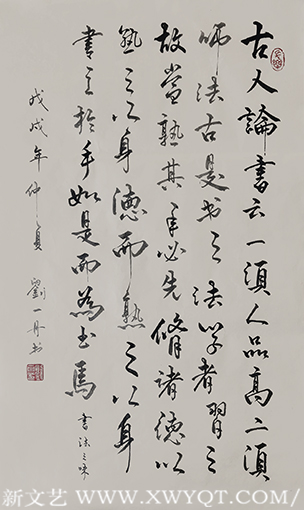 古人論書云一須人品高二須
师法古是书之法学者習之
故當熟其手必先脩諸德以
熟之以身德而熟之以身
書之於手如是而為书焉
書法之味
戊戌年仲夏
劉一丹书
新文艺 www.XWYQT.COM